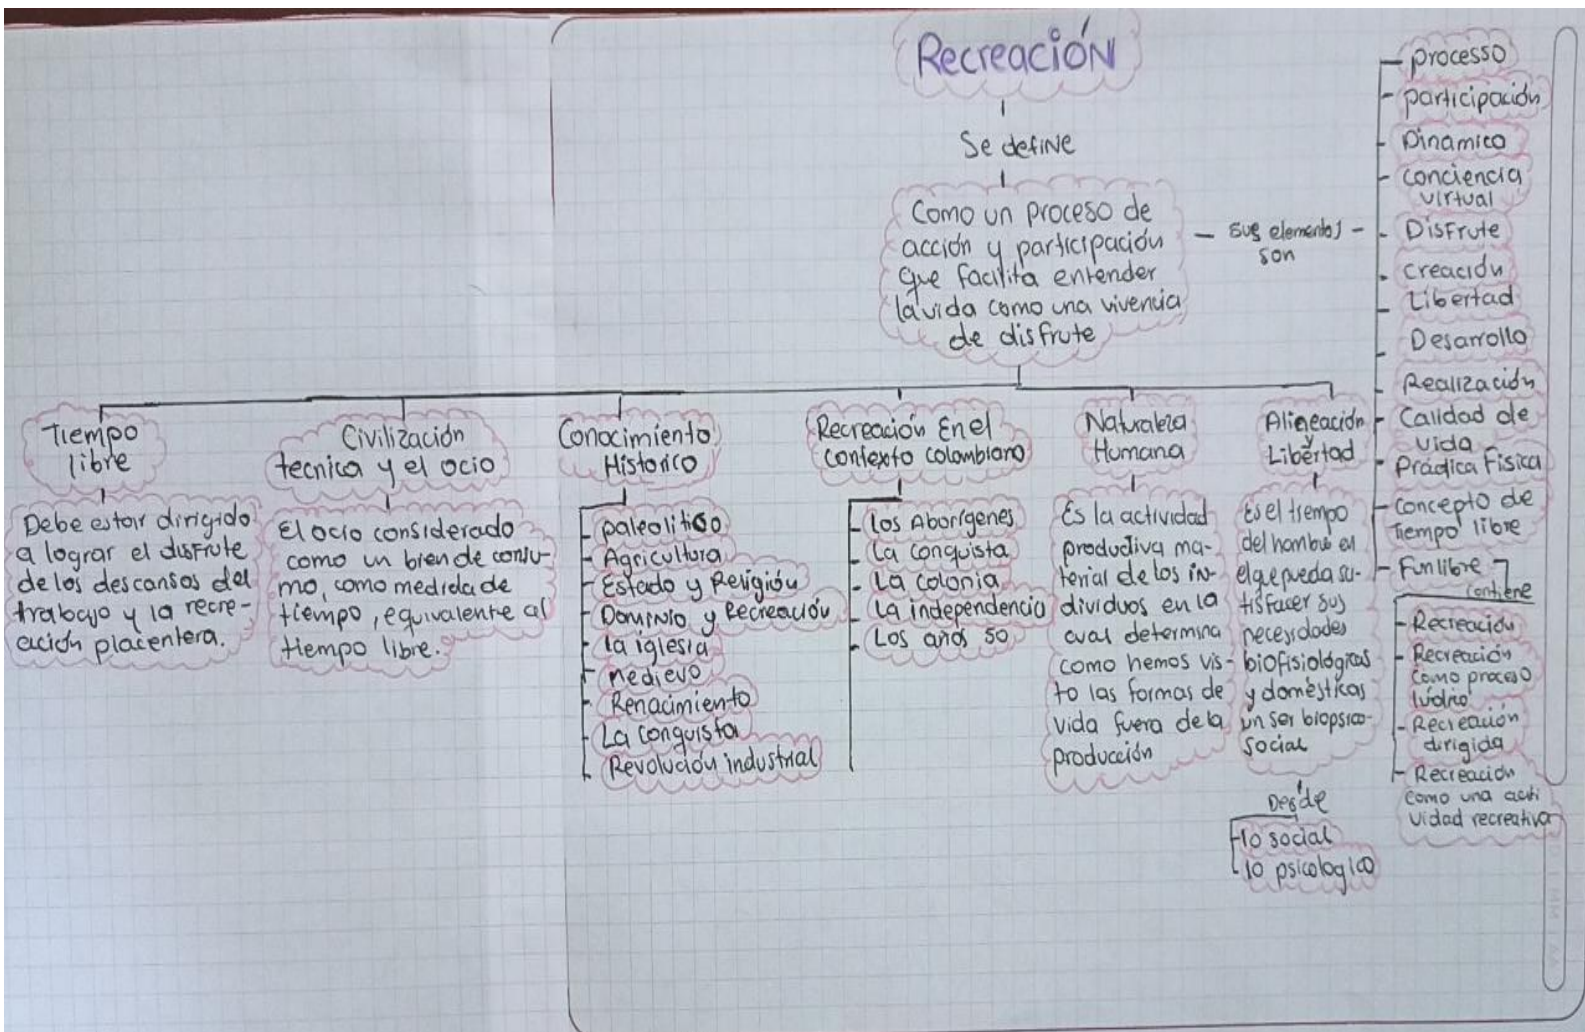 Recreación
Se define
Como un proceso de
acción y participación
que facilita entender
la vida como una vivencia
de disfrute
sus elementos
son
processo
participación
Dinamico
conciencia
virtual
Disfrute
creación
Libertad
Desarrollo
Realización
Calidad de
vida
Prádica Fisica
concepto de
tiempo libre
Funlibre
contiene
Recreación
Recreación
como proceso
ludico
Recreación
dirigida
Recreación
como una acti
vidad recreativa
Tiempo
libre
Debe estar dirigido
a lograr el disfrute
de los descansos del
trabajo y la recre-
ación placentera.
Civilización
tecnica y el ocio
El ocio considerado
como un bien de consu-
mo, como medida de
tiempo, equivalente al
tiempo libre.
Conocimiento
Historico
paleolitico
Agricultura
Estado y Religión
Dominio y Recreación
la iglesia
medievo
Renacimiento
La conquista
Revolución industrial
Recreación En el
contexto colombiano
Los Aborígenes
La conquista
La colonia
La independencia
Los años 50
Naturaleza
Humana
Es la actividad
productiva ma-
terial de los in-
dividuos en la
cual determina
como hemos vis-
to las formas de
vida fuera de la
producción
Alineación
y
Libertad
Es el tiempo
del hombre en
el qe pueda sa-
tisfacer sus
necesidades
biofisiológicas
y domésticas
un ser biopsico-
social
Desde
lo social
lo psicologico